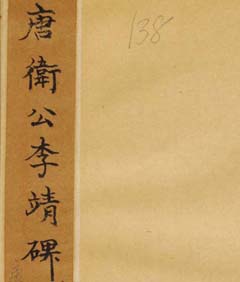 唐衛公李靖碑
138